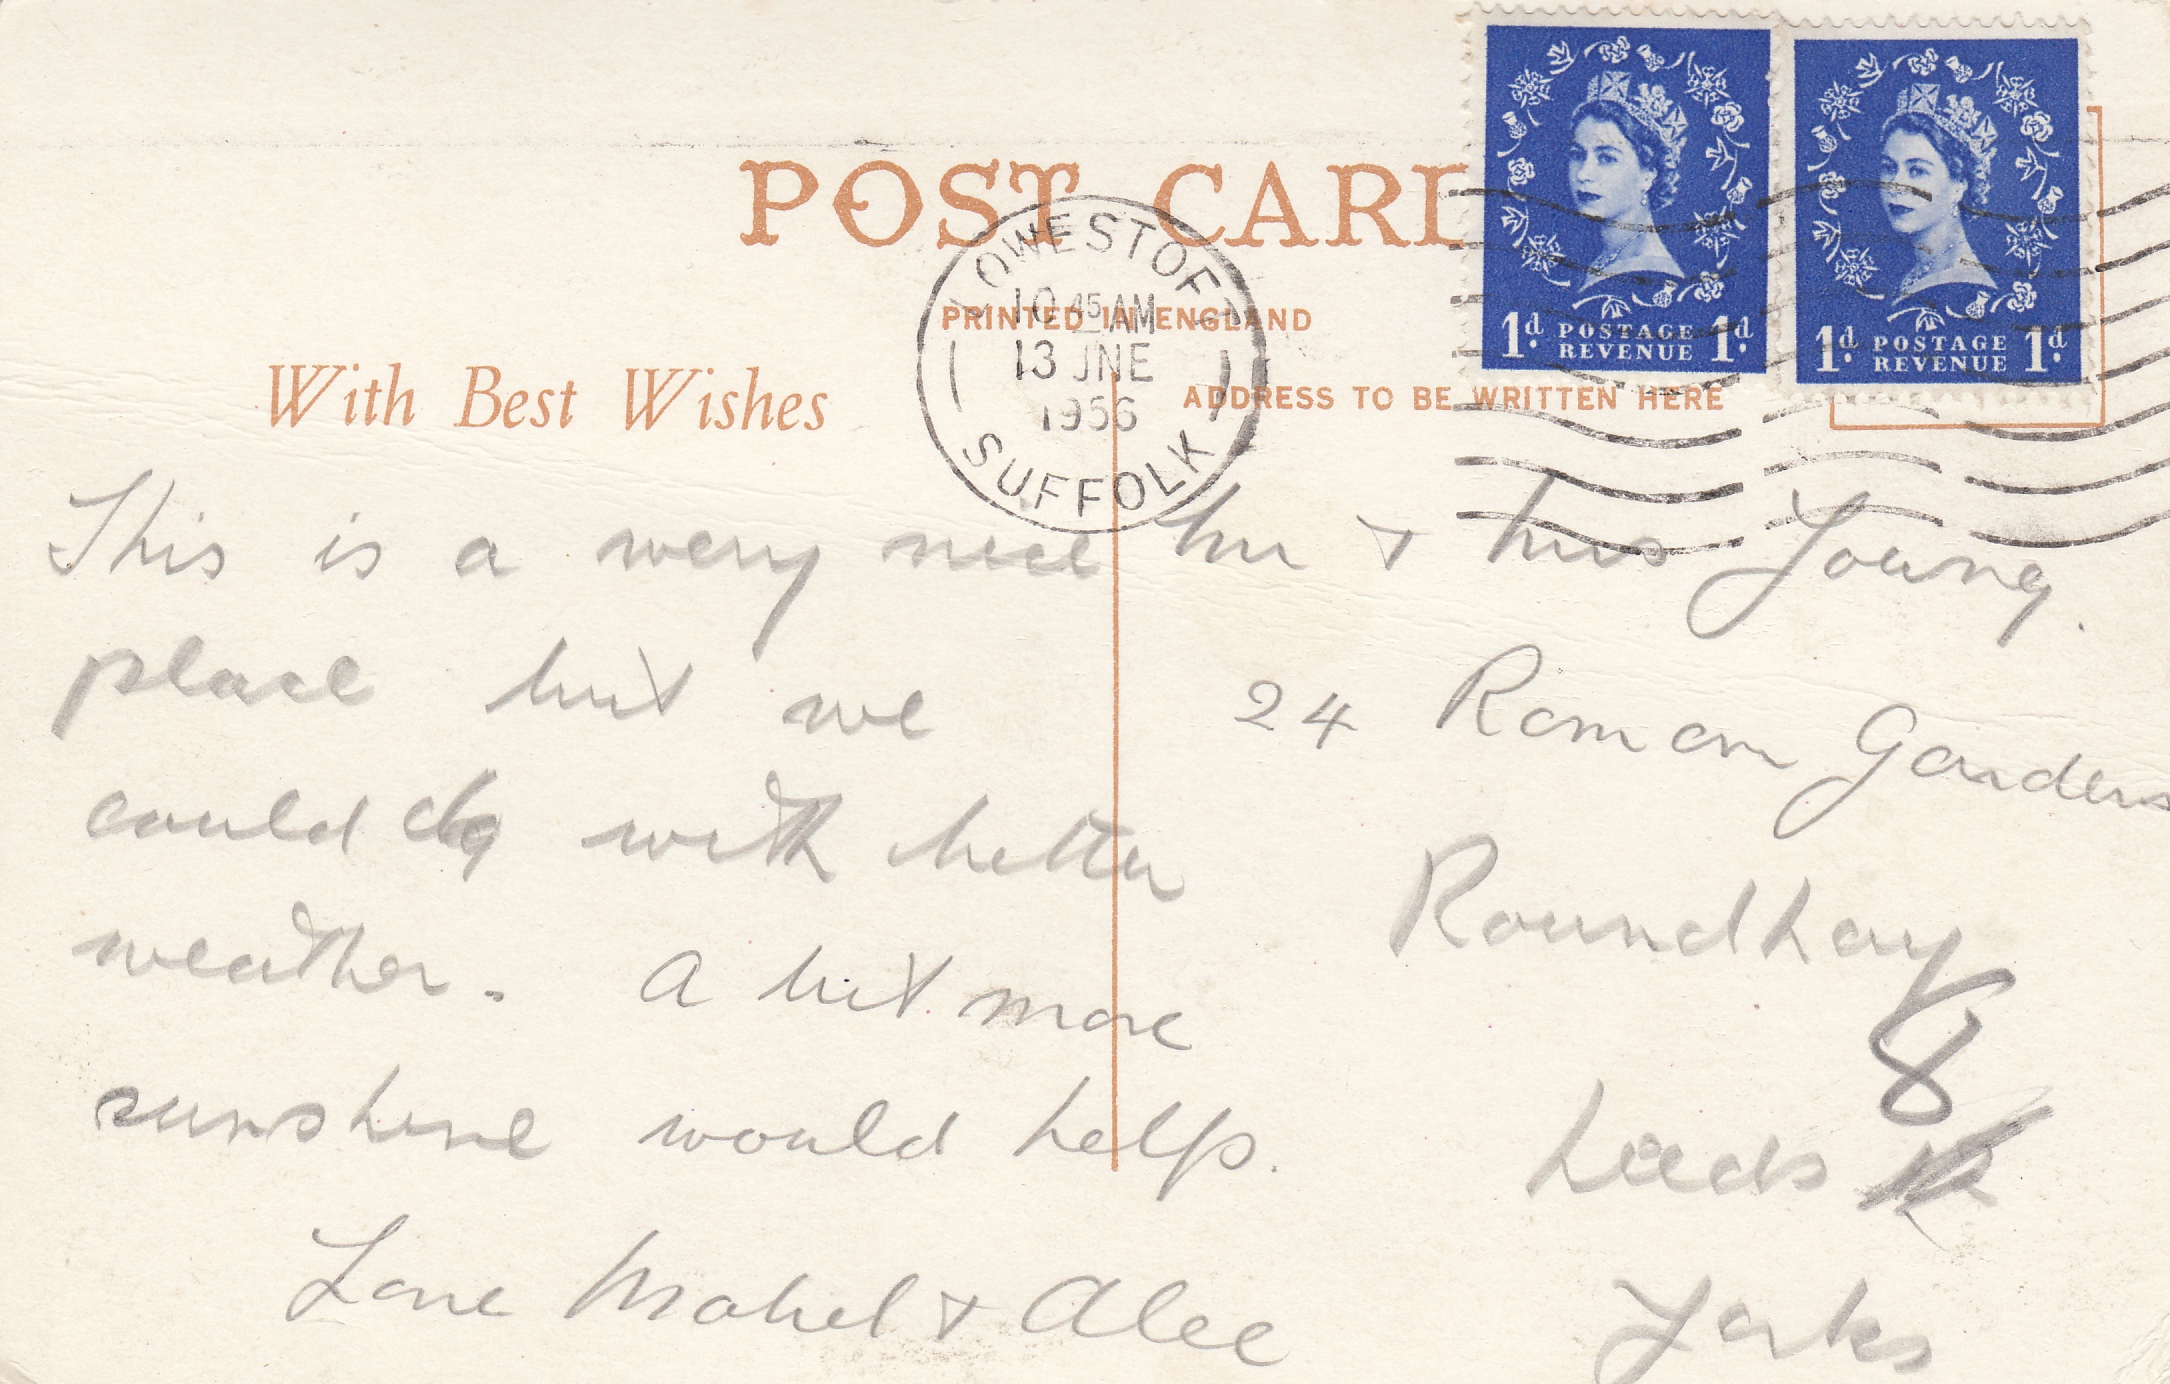 POST CARD
LOWESTOFT
10 45 AM
13 JNE
1956
SUFFOLK
PRINTED IN ENGLAND
With Best Wishes
ADDRESS TO BE WRITTEN HERE
1d POSTAGE REVENUE 1d
1d POSTAGE REVENUE 1d
This is a very nice
place but we
could do with better
weather. A bit more
sunshine would help.
Love Mabel + Alec
Mr + Mrs Young.
24 Roman Gardens
Roundhay
8
Leeds
Yorks